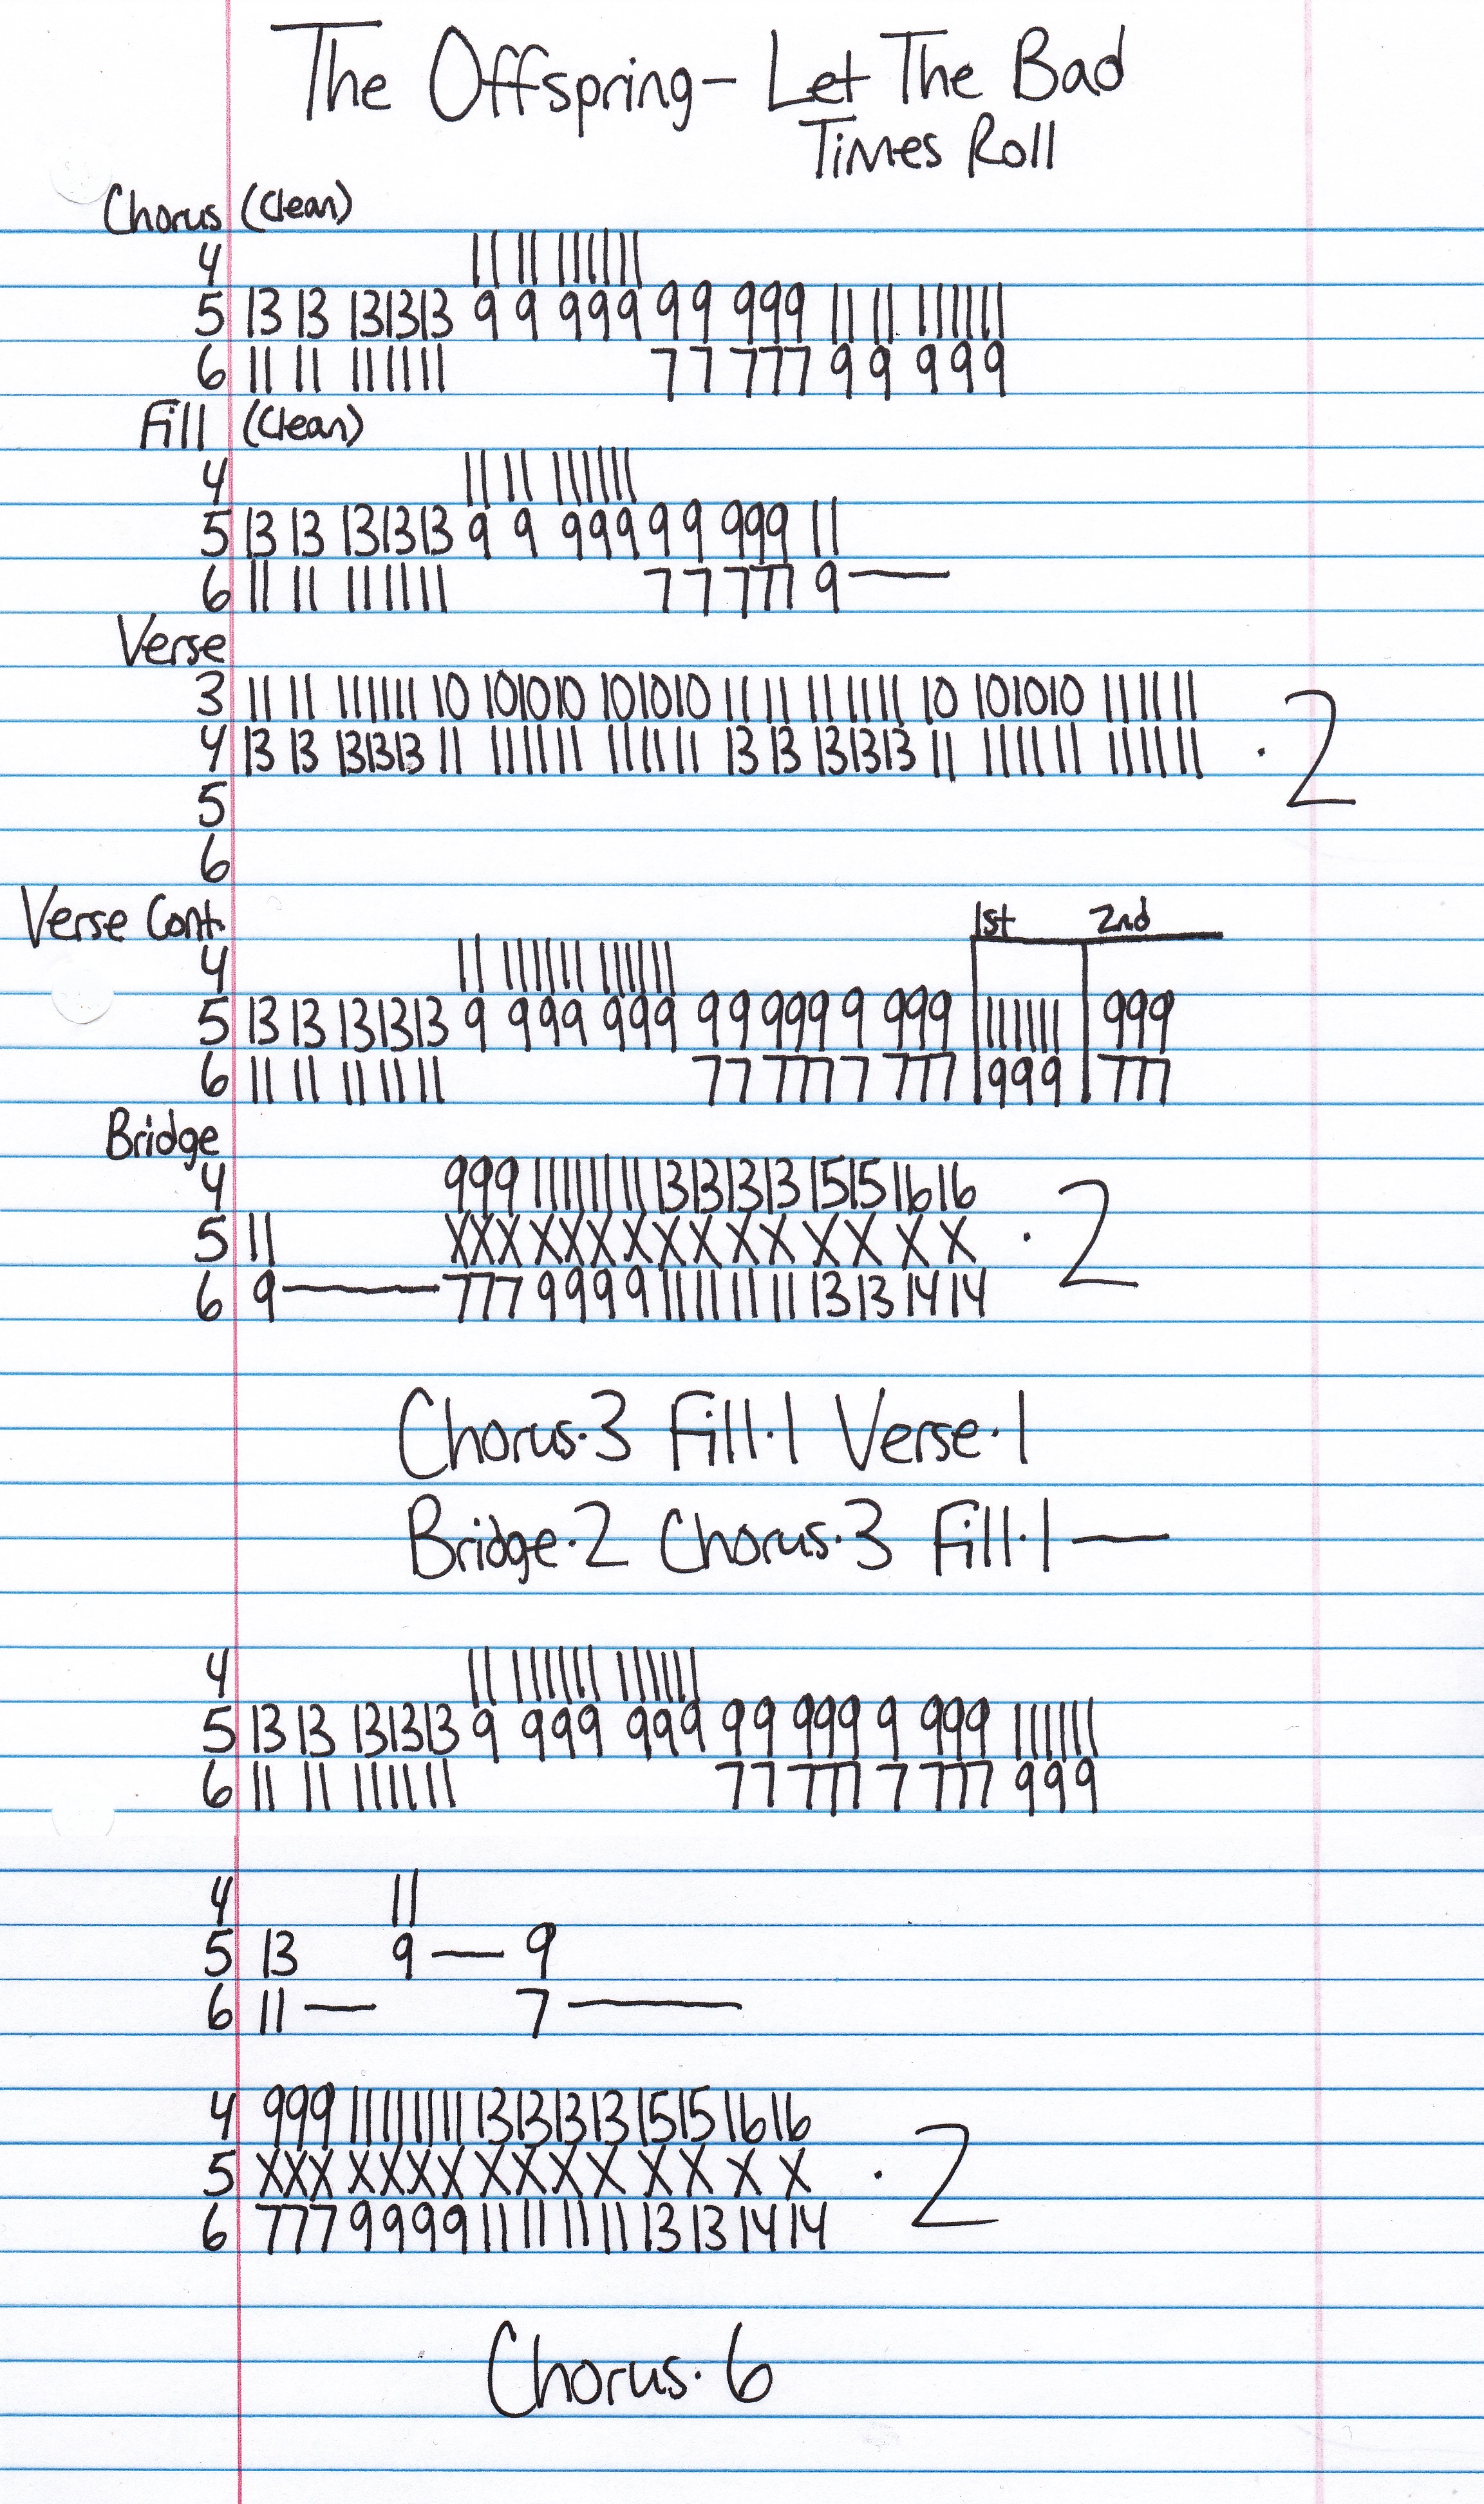 The Offspring - Let The Bad
Times Roll
Chorus (Clean)
4 11 11 111111
5 13 13 131313 9 9 999 99 999 11 11 111111
6 11 11 111111 77 777 9 9 999
Fill (Clean)
4 11 11 111111
5 13 13 131313 9 9 999 99 999 11
6 11 11 111111 77 777 9 —
Verse
3 11 11 111111 10 101010 101010 11 11 111111 10 101010 111111
4 13 13 131313 11 111111 111111 13 13 131313 11 111111 111111 · 2
5
6
Verse Cont. 1st 2nd
4 11 111111 111111
5 13 13 131313 9 999 999 99 999 9 999 111111 999
6 11 11 111111 77 777 7 777 999 777
Bridge
4 999 11111111 13131313 1515 1616
5 11 XXX XXXX XXXX XX XX · 2
6 9 — 777 9999 11111111 1313 1414
Chorus·3 Fill·1 Verse·1
Bridge·2 Chorus·3 Fill·1 —
4 11 111111 111111
5 13 13 131313 9 999 999 99 999 9 999 111111
6 11 11 111111 77 777 7 777 999
4 11
5 13 9 — 9
6 11 — 7 —
4 999 11111111 13131313 1515 1616
5 XXX XXXX XXXX XX XX · 2
6 777 9999 11111111 1313 1414
Chorus·6